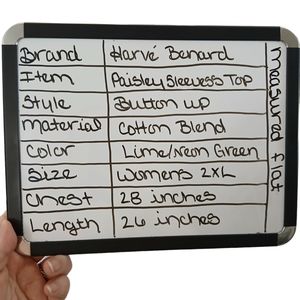 Brand Harvé Benard
Item Paisley Sleevess Top
Style Button up
Material Cotton Blend
Color Lime/Neon Green
Size Womens 2XL
Chest 28 inches
Length 26 inches
measured flat